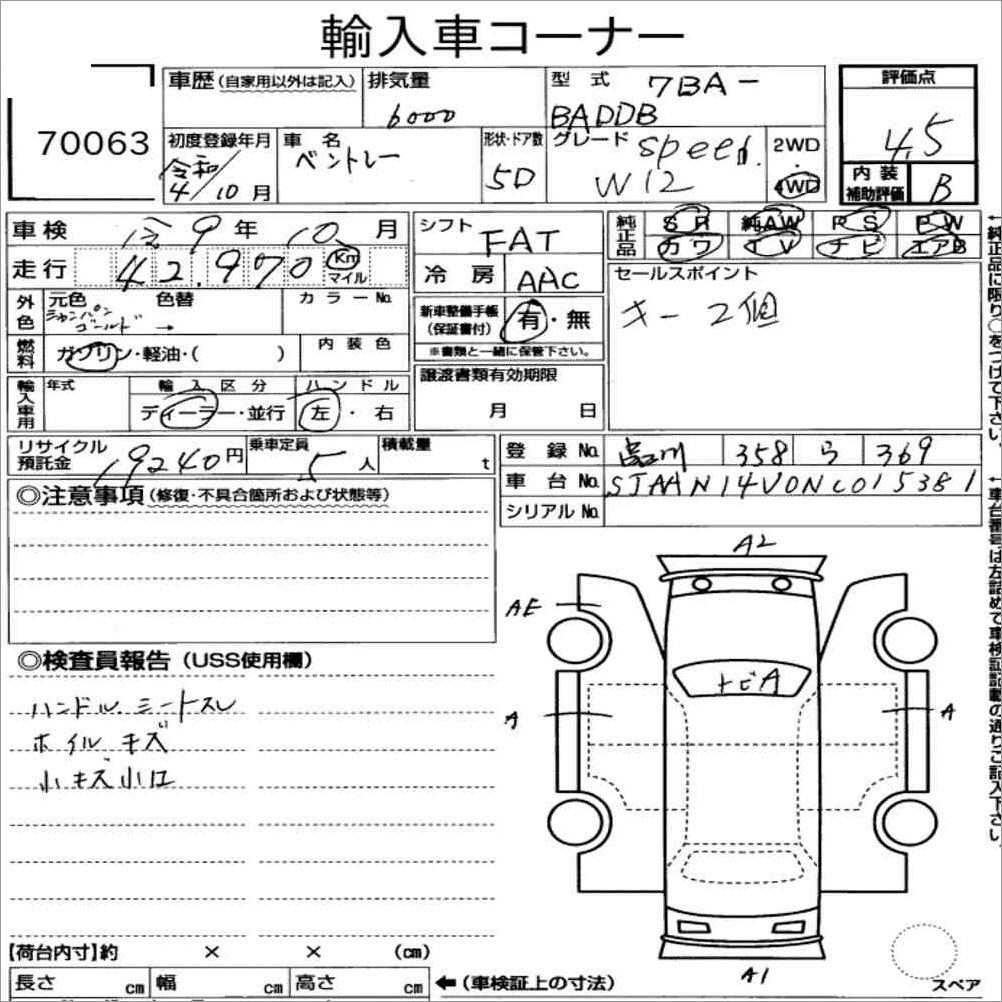 輸入車コーナー
70063
車歴(自家用以外は記入) 排気量 6000
型式 7BA-
BADDB
評価点 4.5
内装補助評価 B
初度登録年月 令和 4/10月
車名 ベントレー
形状・ドア数 5D
グレード speed.
W12
2WD
4WD
車検 令9年10月
走行 42,970 Km マイル
シフト FAT
冷房 AAC
純正品 SR 純AW PS PW
カワ TV ナビ エアB
セールスポイント
キー2個
外色 元色 シャンパンゴールド → 色替 カラーNo.
燃料 ガソリン・軽油・( ) 内装色
新車整備手帳(保証書付) 有・無
※書類と一緒に保管下さい。
輸入車用 年式 輸入区分 ハンドル
ディーラー・並行 左・右
譲渡書類有効期限
月 日
リサイクル預託金 19240円 乗車定員 5人 積載量 t
登録No. 品川 358 ら 369
車台No. SJAAN14V0NC015381
シリアルNo.
◎注意事項(修復・不具合箇所および状態等)
◎検査員報告(USS使用欄)
ハンドル.シートスレ
ホイルキズ
小キズ小凹
A2
AE
トビA
A
A
A1
スペア
【荷台内寸】約 × × (cm)
長さ cm 幅 cm 高さ cm ←(車検証上の寸法)
←純正品に限り○をつけて下さい。
←車台番号は左詰めで車検証記載の通りご記入下さい。